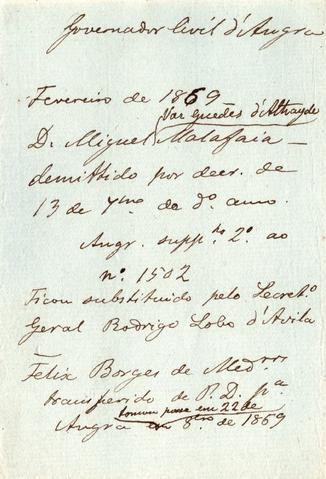 Governador Civil d'Angra
Fevereiro de 1869
Vaz Guedes d'Athayde
D. Miguel Malafaia —
demittido por decr. de
13 de 7mo de do anno.
Angr. suppto 2º ao
nº. 1502
Ficou substituido pelo Secretº
Geral Rodrigo Lobo d'Avila
—
Felix Borges de Medros
transferido de P. D. pª
tomou posse em 22 de
Angra 8bro de 1869